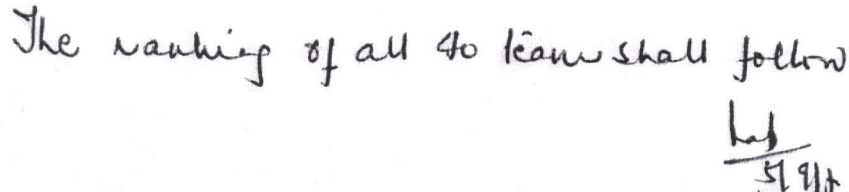 The ranking of all 40 teams shall follow